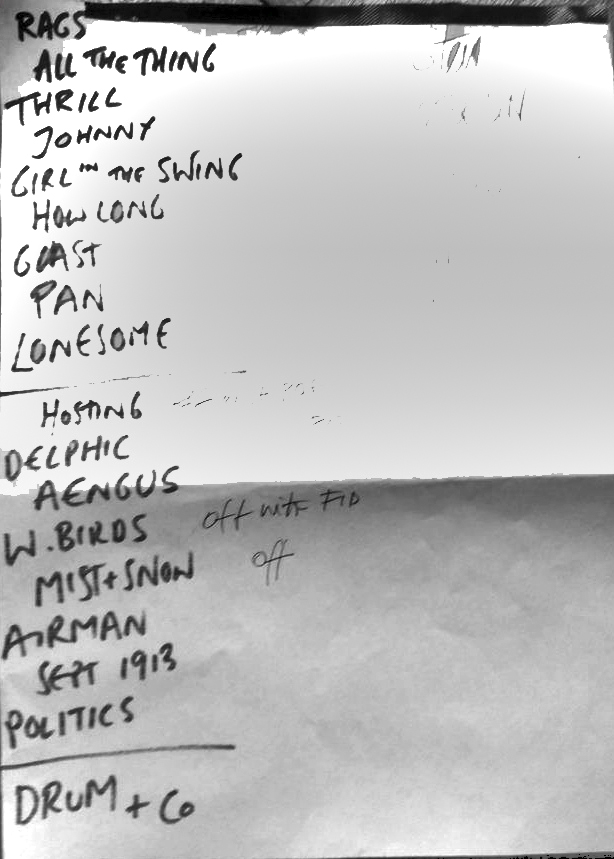 RAGS
ALL THE THING
THRILL
JOHNNY
GIRL IN THE SWING
HOW LONG
GLAST
PAN
LONESOME
HOSTING
DELPHIC
AENGUS
W. BIRDS off with FID
MIST + SNOW off
AIRMAN
SEPT 1913
POLITICS
DRUM + Co